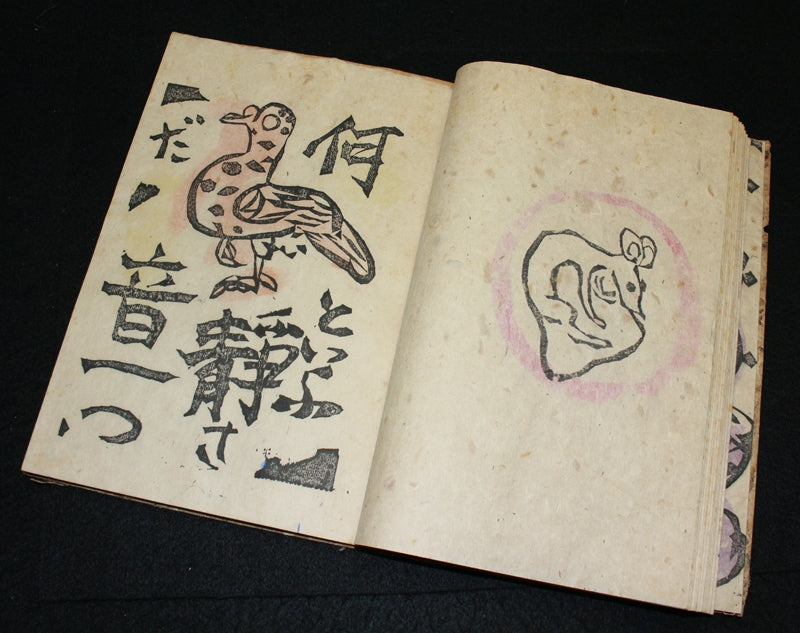 何といふ
静さ
だ
一つ